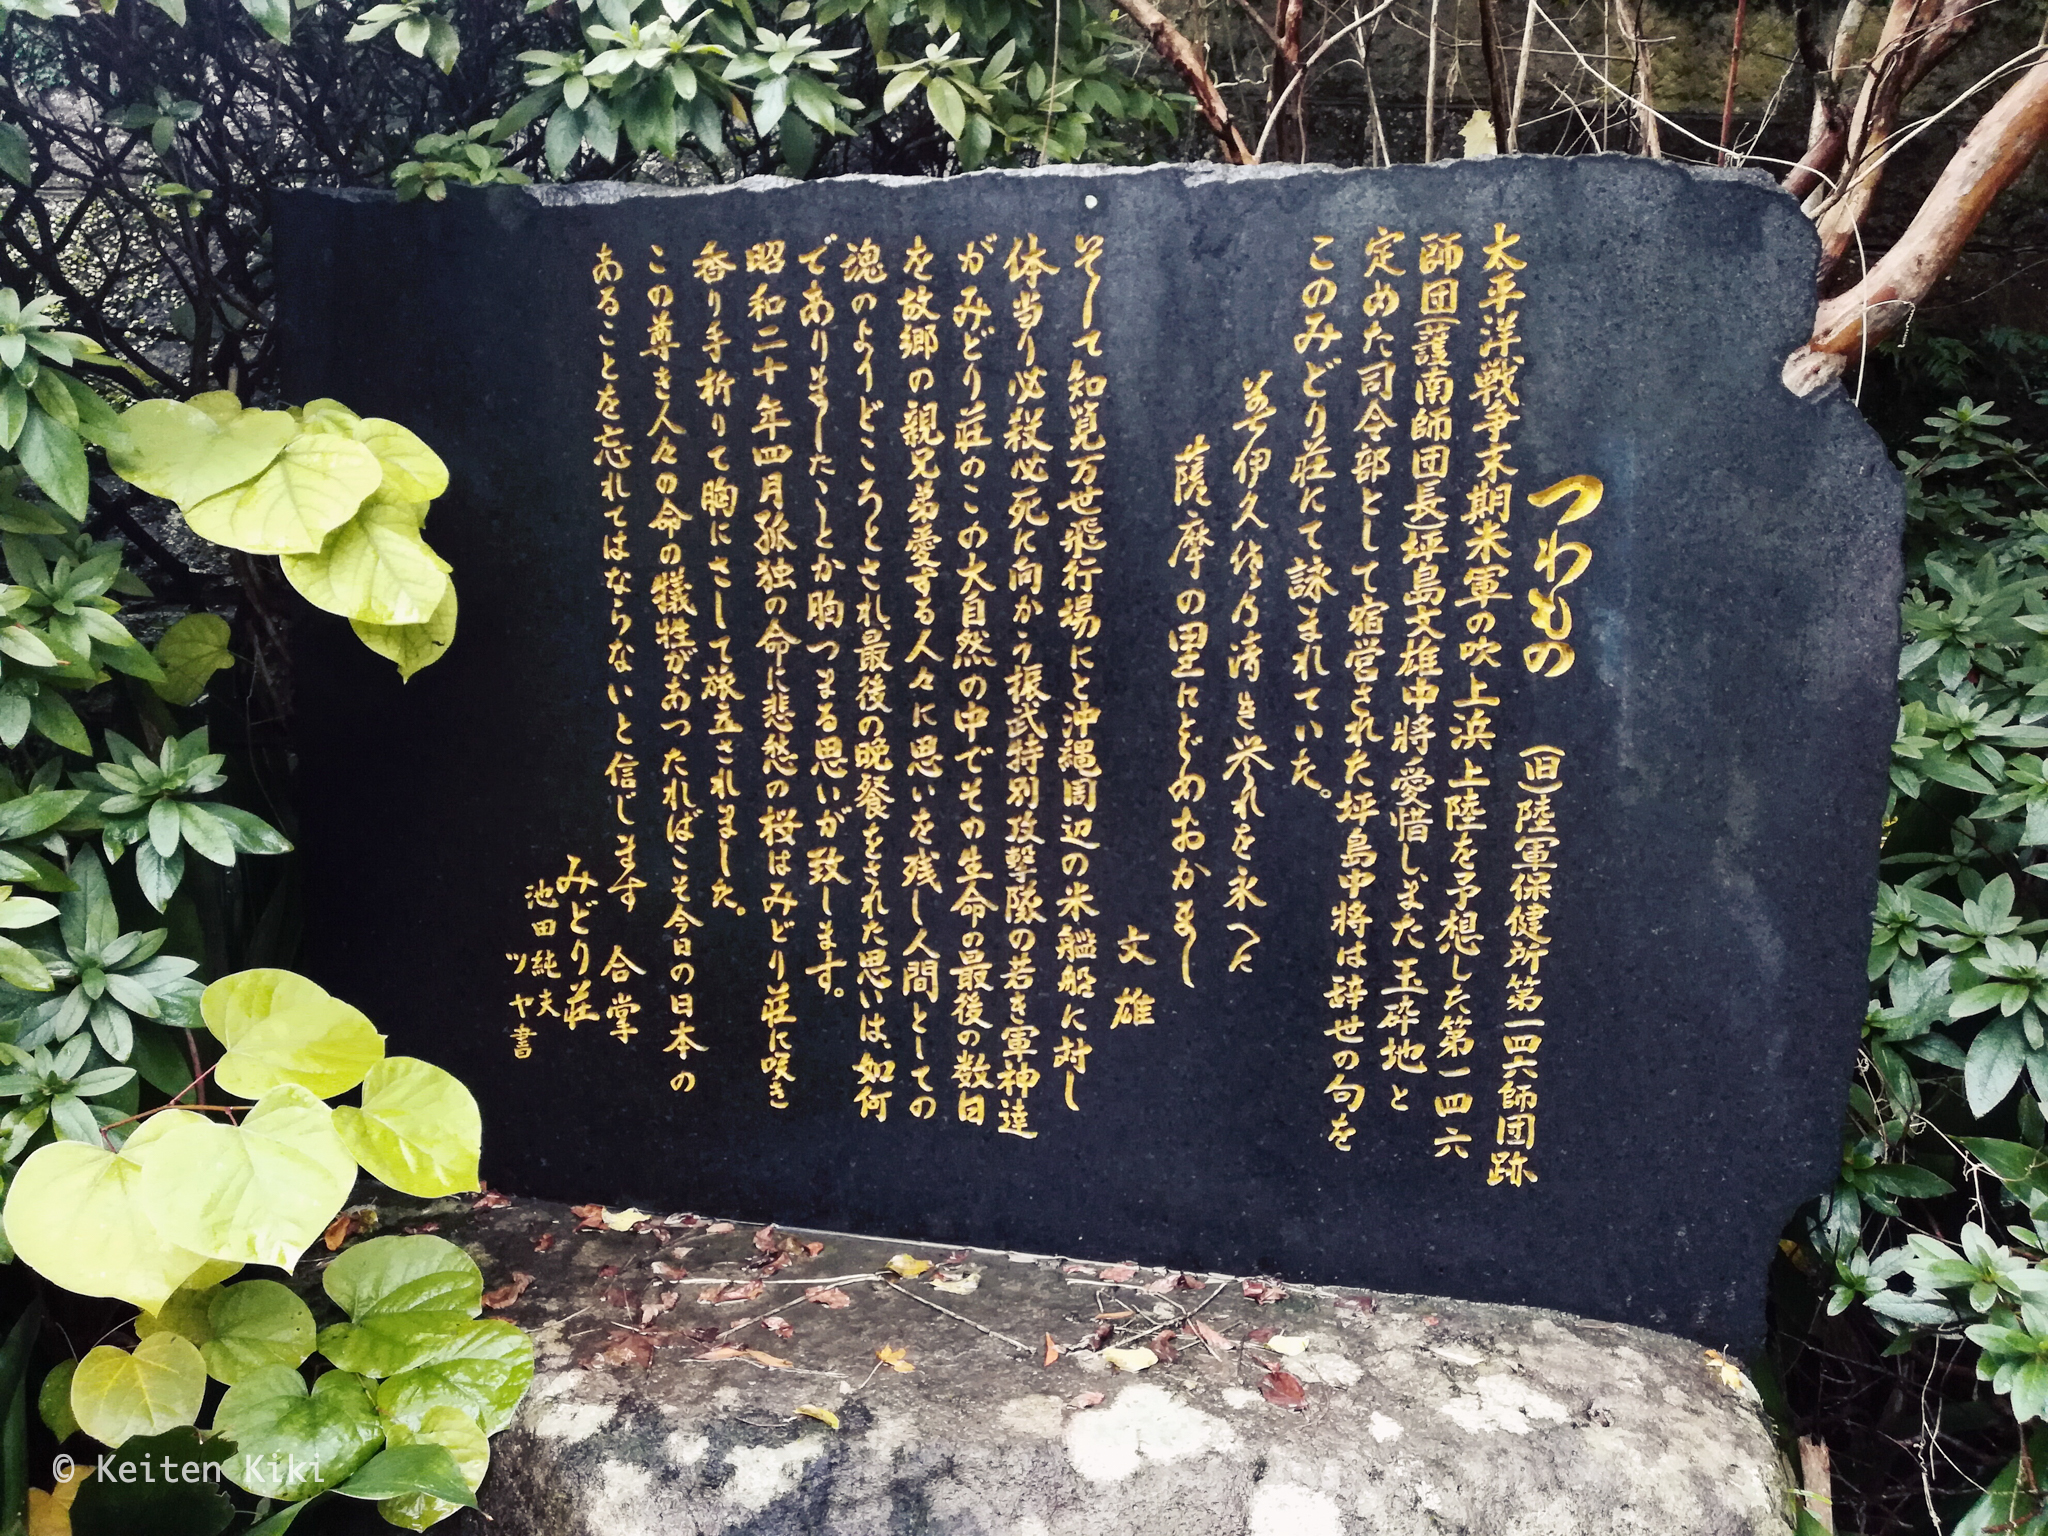 つわもの (旧)陸軍保健所第一四六師団跡
太平洋戦争末期米軍の吹上浜上陸を予想した第一四六
師団(護南師団長)坪島文雄中将愛惜しまた玉砕地と
定めた司令部として宿営された坪島中将は辞世の句を
このみどり荘にて詠まれていた。
伊久
き誉れを永へに
薩摩の里にとどめおかまし
文雄
そして知覧万世飛行場にと沖縄周辺の米艦船に対し
体当り必殺必死に向かう振武特別攻撃隊の若き軍神達
がみどり荘のこの大自然の中でその生命の最後の数日
を故郷の親兄弟愛する人々に思いを残し人間としての
魂のよりどころとされ最後の晩餐をされた思いは、如何
でありましたことか胸つまる思いが致します。
昭和二十年四月孤独の命に悲愁の桜はみどり荘に咲き
香り手折りて胸にさして旅立されました。
この尊き人々の命の犠牲があったればこそ今日の日本の
あることを忘れてはならないと信じます 合掌
みどり荘
池田純夫
ツヤ書
© Keiten Kiki